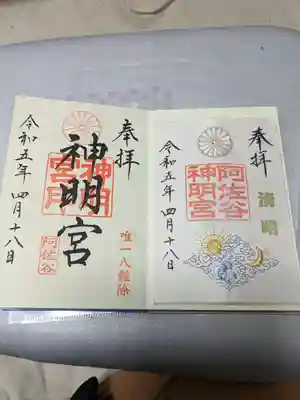 奉拝
神明宮
神明宮
唯一八難除
令和五年四月十八日
阿佐谷
奉拝
清明
阿佐谷
神明宮
令和五年四月十八日